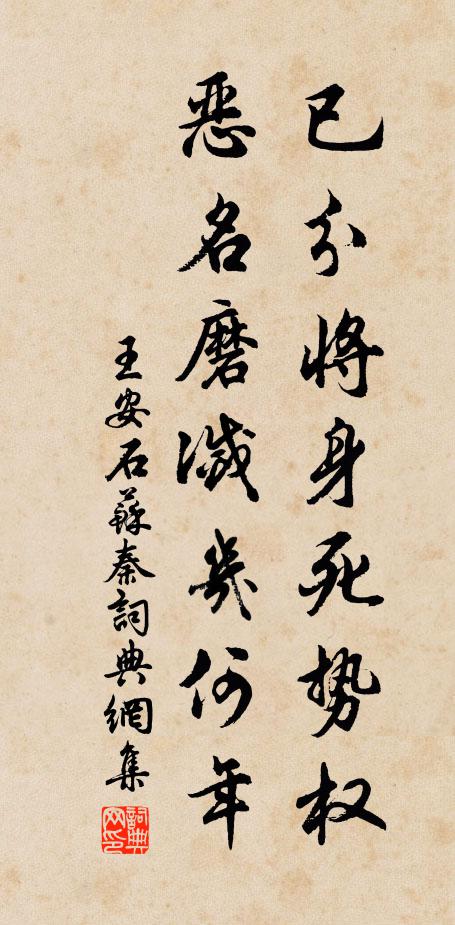 已分将身死势权
惡名磨滅幾何年
王安石蘇秦詞典網集
詞典网印